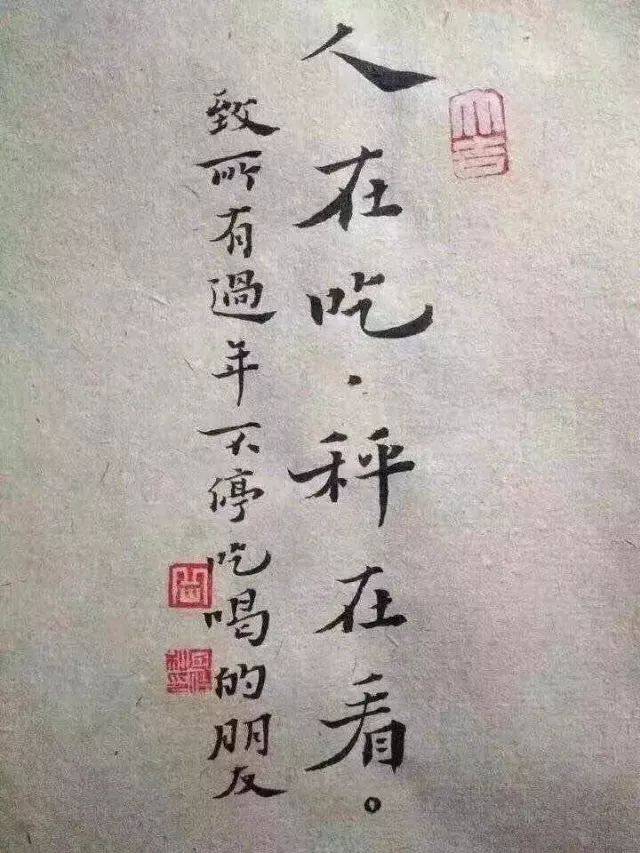 大吉
人在吃·秤在看。
致所有過年不停吃喝的朋友